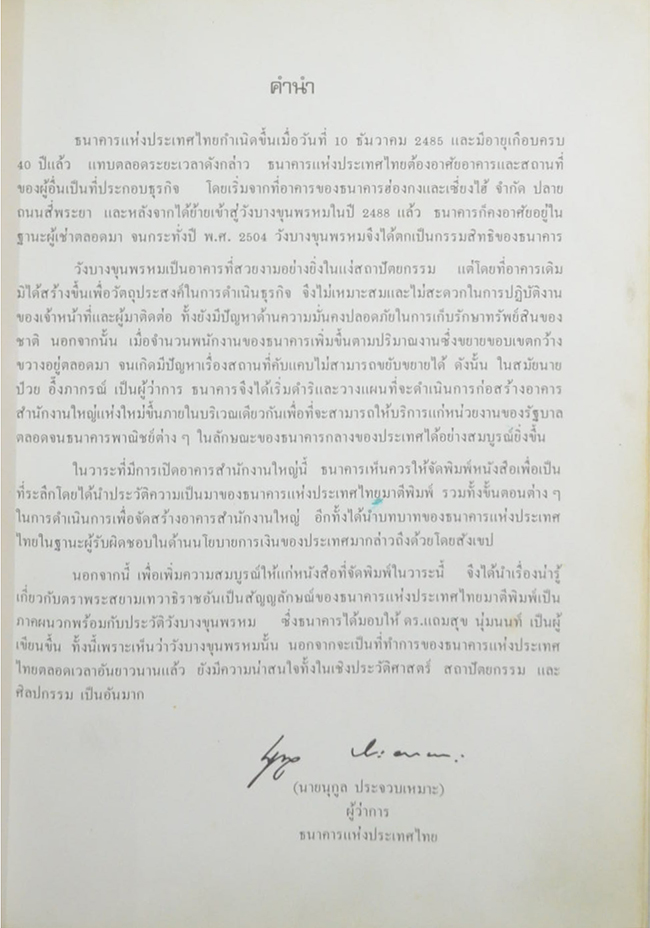 คำนำ
ธนาคารแห่งประเทศไทยกำเนิดขึ้นเมื่อวันที่ 10 ธันวาคม 2485 และมีอายุเกือบครบ
40 ปีแล้ว แทบตลอดระยะเวลาดังกล่าว ธนาคารแห่งประเทศไทยต้องอาศัยอาคารและสถานที่
ของผู้อื่นเป็นที่ประกอบธุรกิจ โดยเริ่มจากที่อาคารของธนาคารฮ่องกงและเซี่ยงไฮ้ จำกัด ปลาย
ถนนสี่พระยา และหลังจากได้ย้ายเข้าสู่วังบางขุนพรหมในปี 2488 แล้ว ธนาคารก็คงอาศัยอยู่ใน
ฐานะผู้เช่าตลอดมา จนกระทั่งปี พ.ศ. 2504 วังบางขุนพรหมจึงได้ตกเป็นกรรมสิทธิของธนาคาร
วังบางขุนพรหมเป็นอาคารที่สวยงามอย่างยิ่งในแง่สถาปัตยกรรม แต่โดยที่อาคารเดิม
มิได้สร้างขึ้นเพื่อวัตถุประสงค์ในการดำเนินธุรกิจ จึงไม่เหมาะสมและไม่สะดวกในการปฏิบัติงาน
ของเจ้าหน้าที่และผู้มาติดต่อ ทั้งยังมีปัญหาด้านความมั่นคงปลอดภัยในการเก็บรักษาทรัพย์สินของ
ชาติ นอกจากนั้น เมื่อจำนวนพนักงานของธนาคารเพิ่มขึ้นตามปริมาณงานซึ่งขยายขอบเขตกว้าง
ขวางอยู่ตลอดมา จนเกิดมีปัญหาเรื่องสถานที่คับแคบไม่สามารถขยับขยายได้ ดังนั้น ในสมัยนาย
ป๋วย อึ๊งภากรณ์ เป็นผู้ว่าการ ธนาคารจึงได้เริ่มดำริและวางแผนที่จะดำเนินการก่อสร้างอาคาร
สำนักงานใหญ่แห่งใหม่ขึ้นภายในบริเวณเดียวกันเพื่อที่จะสามารถให้บริการแก่หน่วยงานของรัฐบาล
ตลอดจนธนาคารพาณิชย์ต่าง ๆ ในลักษณะของธนาคารกลางของประเทศได้อย่างสมบูรณ์ยิ่งขึ้น
ในวาระที่มีการเปิดอาคารสำนักงานใหญ่นี้ ธนาคารเห็นควรให้จัดพิมพ์หนังสือเพื่อเป็น
ที่ระลึกโดยได้นำประวัติความเป็นมาของธนาคารแห่งประเทศไทยมาตีพิมพ์ รวมทั้งขั้นตอนต่าง ๆ
ในการดำเนินการเพื่อจัดสร้างอาคารสำนักงานใหญ่ อีกทั้งได้นำบทบาทของธนาคารแห่งประเทศ
ไทยในฐานะผู้รับผิดชอบในด้านนโยบายการเงินของประเทศมากล่าวถึงด้วยโดยสังเขป
นอกจากนี้ เพื่อเพิ่มความสมบูรณ์ให้แก่หนังสือที่จัดพิมพ์ในวาระนี้ จึงได้นำเรื่องน่ารู้
เกี่ยวกับตราพระสยามเทวาธิราชอันเป็นสัญญลักษณ์ของธนาคารแห่งประเทศไทยมาตีพิมพ์เป็น
ภาคผนวกพร้อมกับประวัติวังบางขุนพรหม ซึ่งธนาคารได้มอบให้ ดร.แถมสุข นุ่มนนท์ เป็นผู้
เขียนขึ้น ทั้งนี้เพราะเห็นว่าวังบางขุนพรหมนั้น นอกจากจะเป็นที่ทำการของธนาคารแห่งประเทศ
ไทยตลอดเวลาอันยาวนานแล้ว ยังมีความน่าสนใจทั้งในเชิงประวัติศาสตร์ สถาปัตยกรรม และ
ศิลปกรรม เป็นอันมาก
(นายนุกูล ประจวบเหมาะ)
ผู้ว่าการ
ธนาคารแห่งประเทศไทย